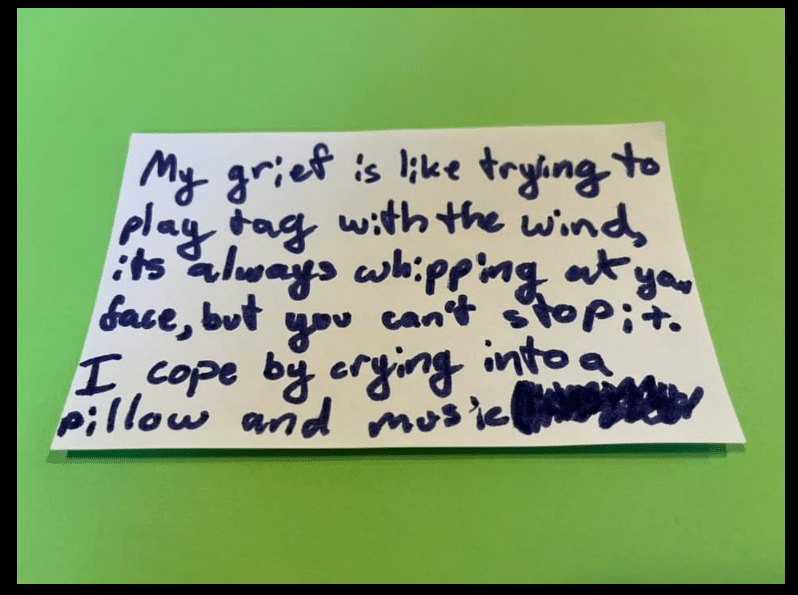 My grief is like trying to
play tag with the wind,
its always whipping at your
face, but you can't stop it.
I cope by crying into a
pillow and music